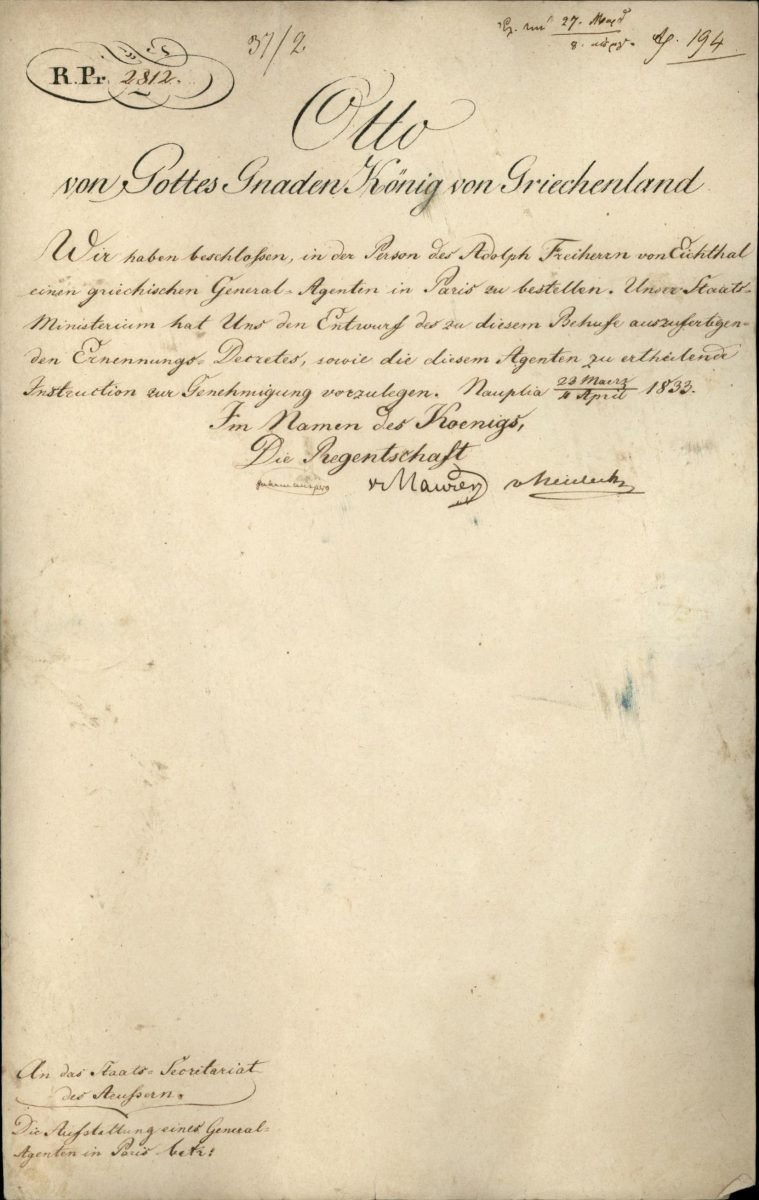 R.Pr. 2812.
37/2
27. Μαρτ
194
Otto
von Gottes Gnaden König von Griechenland
Wir haben beschloßen, in der Person des Adolph Freiherrn von Eichthal
einen griechischen General-Agenten in Paris zu bestellen. Unser Staats-
Ministerium hat Uns den Entwurf des zu diesem Behufe auszufertigen-
den Ernennungs-Decretes, sowie die diesem Agenten zu ertheilende
Instruction zur Genehmigung vorzulegen. Nauplia 23 Maerz / 4 April 1833.
Im Namen des Koenigs,
Die Regentschaft
v. Maurer v. Heideck
An das Staats-Secretariat
des Aeußern.
Die Aufstellung eines General-
Agenten in Paris betr: